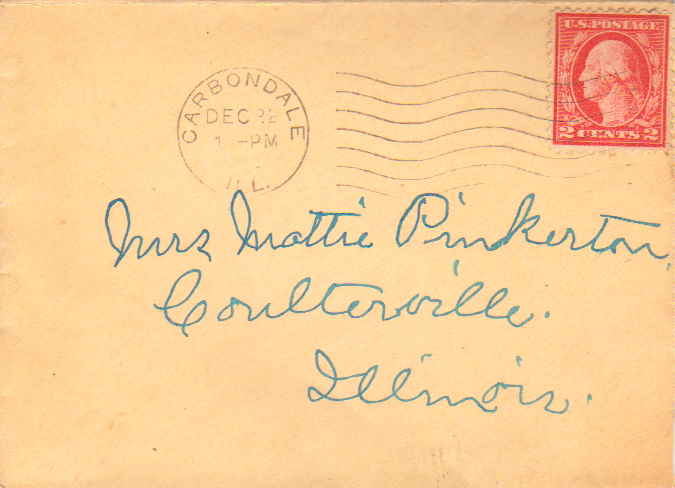 U.S. POSTAGE
2 CENTS 2
CARBONDALE
DEC 22
1 -PM
ILL.
Mrs Mattie Pinkerton,
Coulterville.
Illinois.